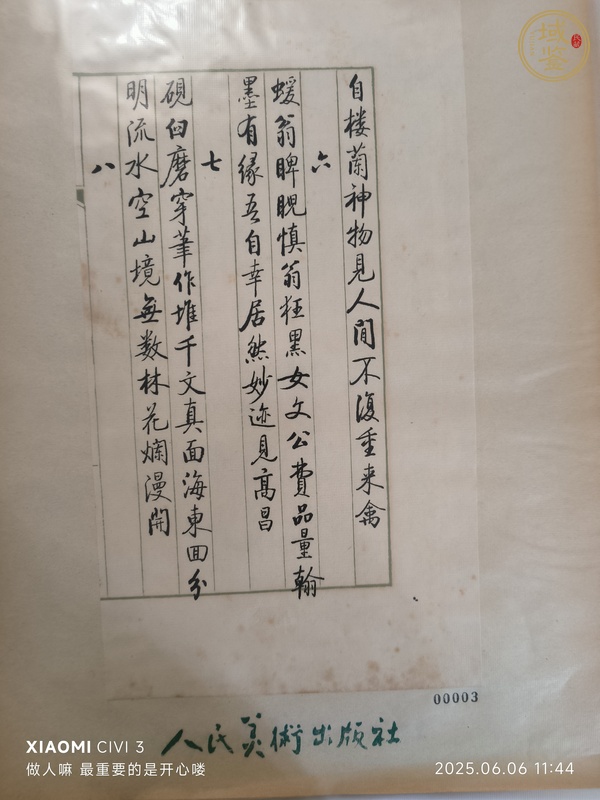 自楼蘭神物見人間不復重来禽
六
蝯翁睥睨慎翁狂黑女文公費品量翰
墨有缘吾自幸居然妙迹見高昌
七
硯臼磨穿筆作堆千文真面海東回分
明流水空山境無数林花爛漫開
八
00003
人民美術出版社
XIAOMI CIVI 3
做人嘛 最重要的是开心喽
2025.06.06 11:44
域鉴